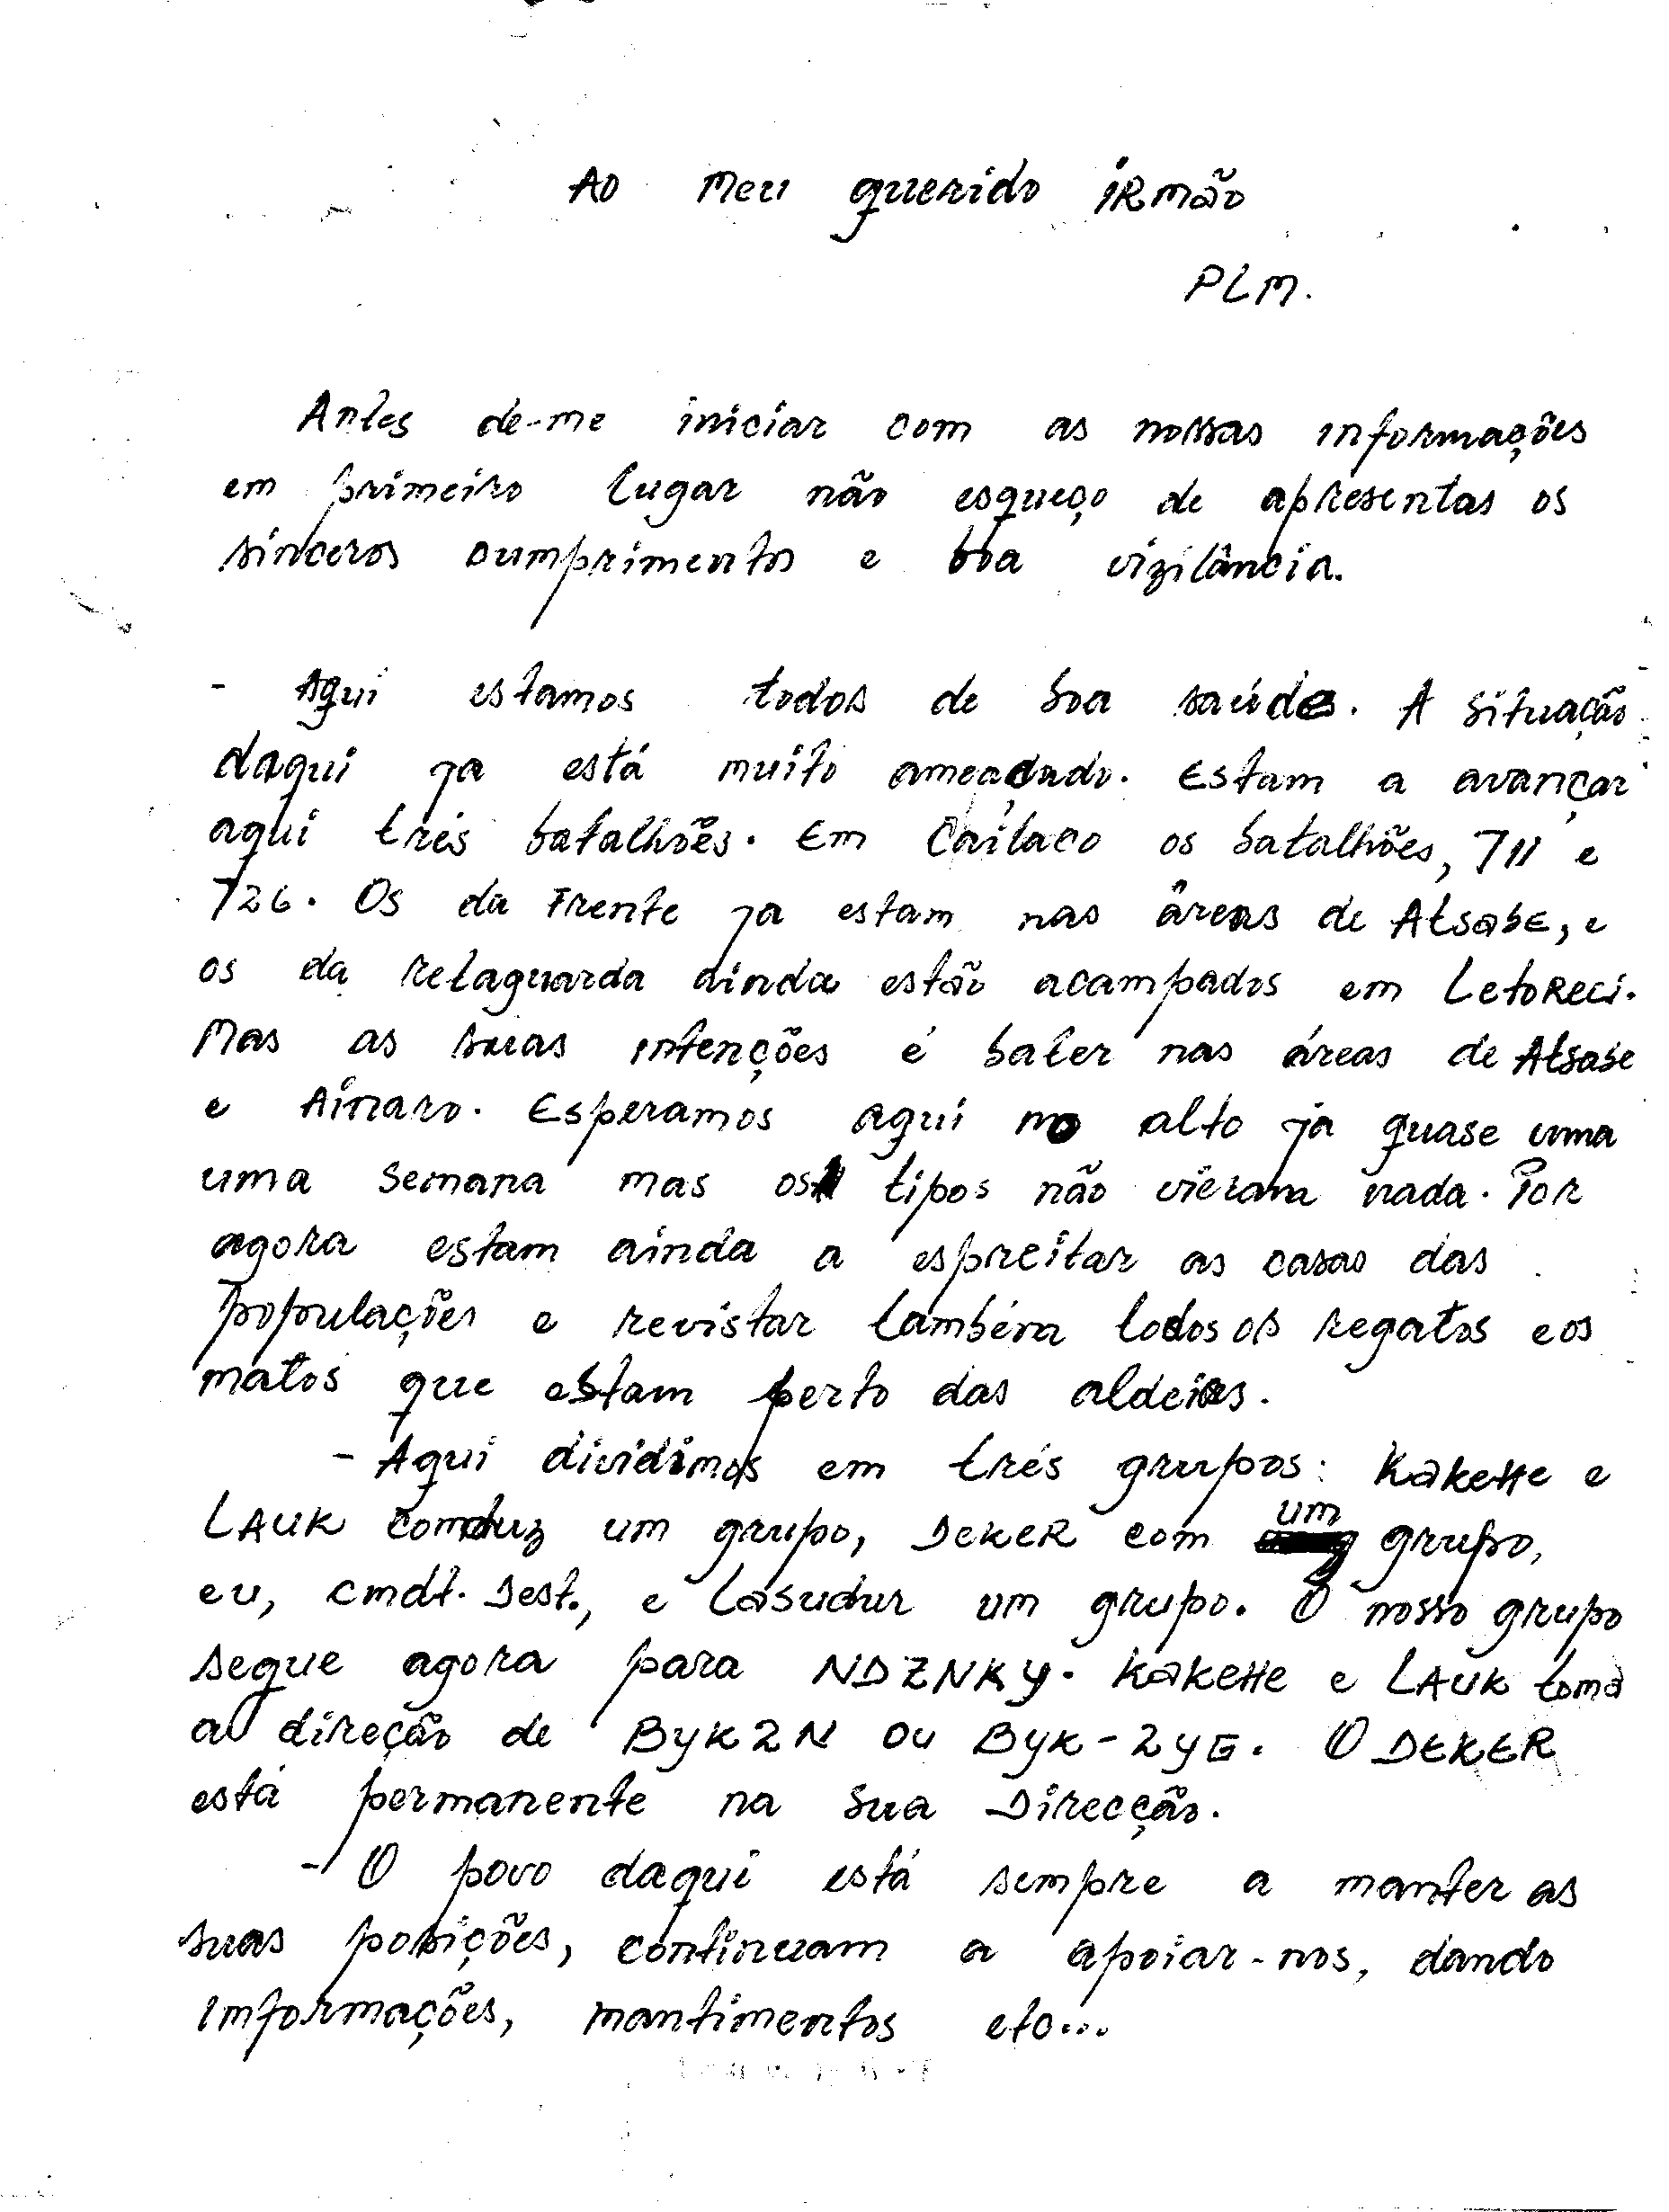 Ao Meu querido IRMão
PLM.
Antes de-me iniciar com as nossas informações
em primeiro lugar não esqueço de apresentas os
sinceros cumprimentos e boa vizilância.
- Aqui estamos todos de boa saúde. A situação
daqui ja está muito ameaçado. Estam a avançar
aqui três batalhões. Em Cailaco os batalhões, 711 e
726. Os da Frente ja estam nas áreas de Atsabe, e
os da retaguarda ainda estão acampados em Letoreci.
Mas as suas intenções é bater nas áreas de Atsabe
e Ainaro. Esperamos aqui no alto ja quase uma
uma semana mas os tipos não vieram nada. Por
agora estam ainda a espreitar as casas das
populações e revistar também todos os regatos e os
matos que estam perto das aldeias.
- Aqui dividimos em três grupos: Kakehe e
LAUK comduz um grupo, DEKER com um grupo,
eu, cmdt. Dest., e Lasudur um grupo. O nosso grupo
segue agora para NDZNKY. Kakehe e LAUK toma
a direção de BYK2N ou BYK-2YG. O DEKER
está permanente na sua Direcção.
- O povo daqui está sempre a manter as
suas posições, continuam a apoiar-nos, dando
Imformações, mantimentos etc...